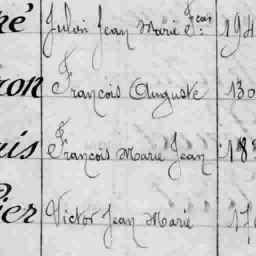 né Julien Jean Marie Fcan: 194
ron François Auguste 130
uis François Marie Jean 183
ier Victor Jean Marie